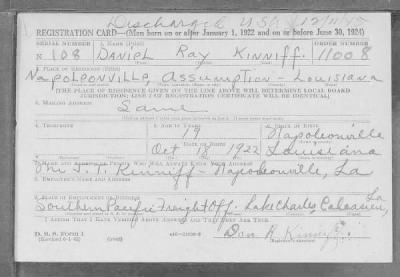 Discharged USA 12/11/45
REGISTRATION CARD—(Men born on or after January 1, 1922 and on or before June 30, 1924)
SERIAL NUMBER 1. NAME (Print) ORDER NUMBER
N 108 DANIEL RAY KINNIFF 11008
2. PLACE OF RESIDENCE (Print)
NAPOLEONVILLE, ASSUMPTION - LOUISIANA
[THE PLACE OF RESIDENCE GIVEN ON THE LINE ABOVE WILL DETERMINE LOCAL BOARD
JURISDICTION; LINE 2 OF REGISTRATION CERTIFICATE WILL BE IDENTICAL]
3. MAILING ADDRESS
Same
4. TELEPHONE 5. AGE IN YEARS 6. PLACE OF BIRTH
19 Napoleonville
DATE OF BIRTH
Oct 18 1922 Louisiana
7. NAME AND ADDRESS OF PERSON WHO WILL ALWAYS KNOW YOUR ADDRESS
Mr. J. T. Kinniff - Napoleonville, La
8. EMPLOYER'S NAME AND ADDRESS
9. PLACE OF EMPLOYMENT OR BUSINESS
Southern Pacific Freight Off. Lake Charles, Calcasieu, La
I AFFIRM THAT I HAVE VERIFIED ABOVE ANSWERS AND THAT THEY ARE TRUE.
D. S. S. Form 1
Dan R. Kinniff